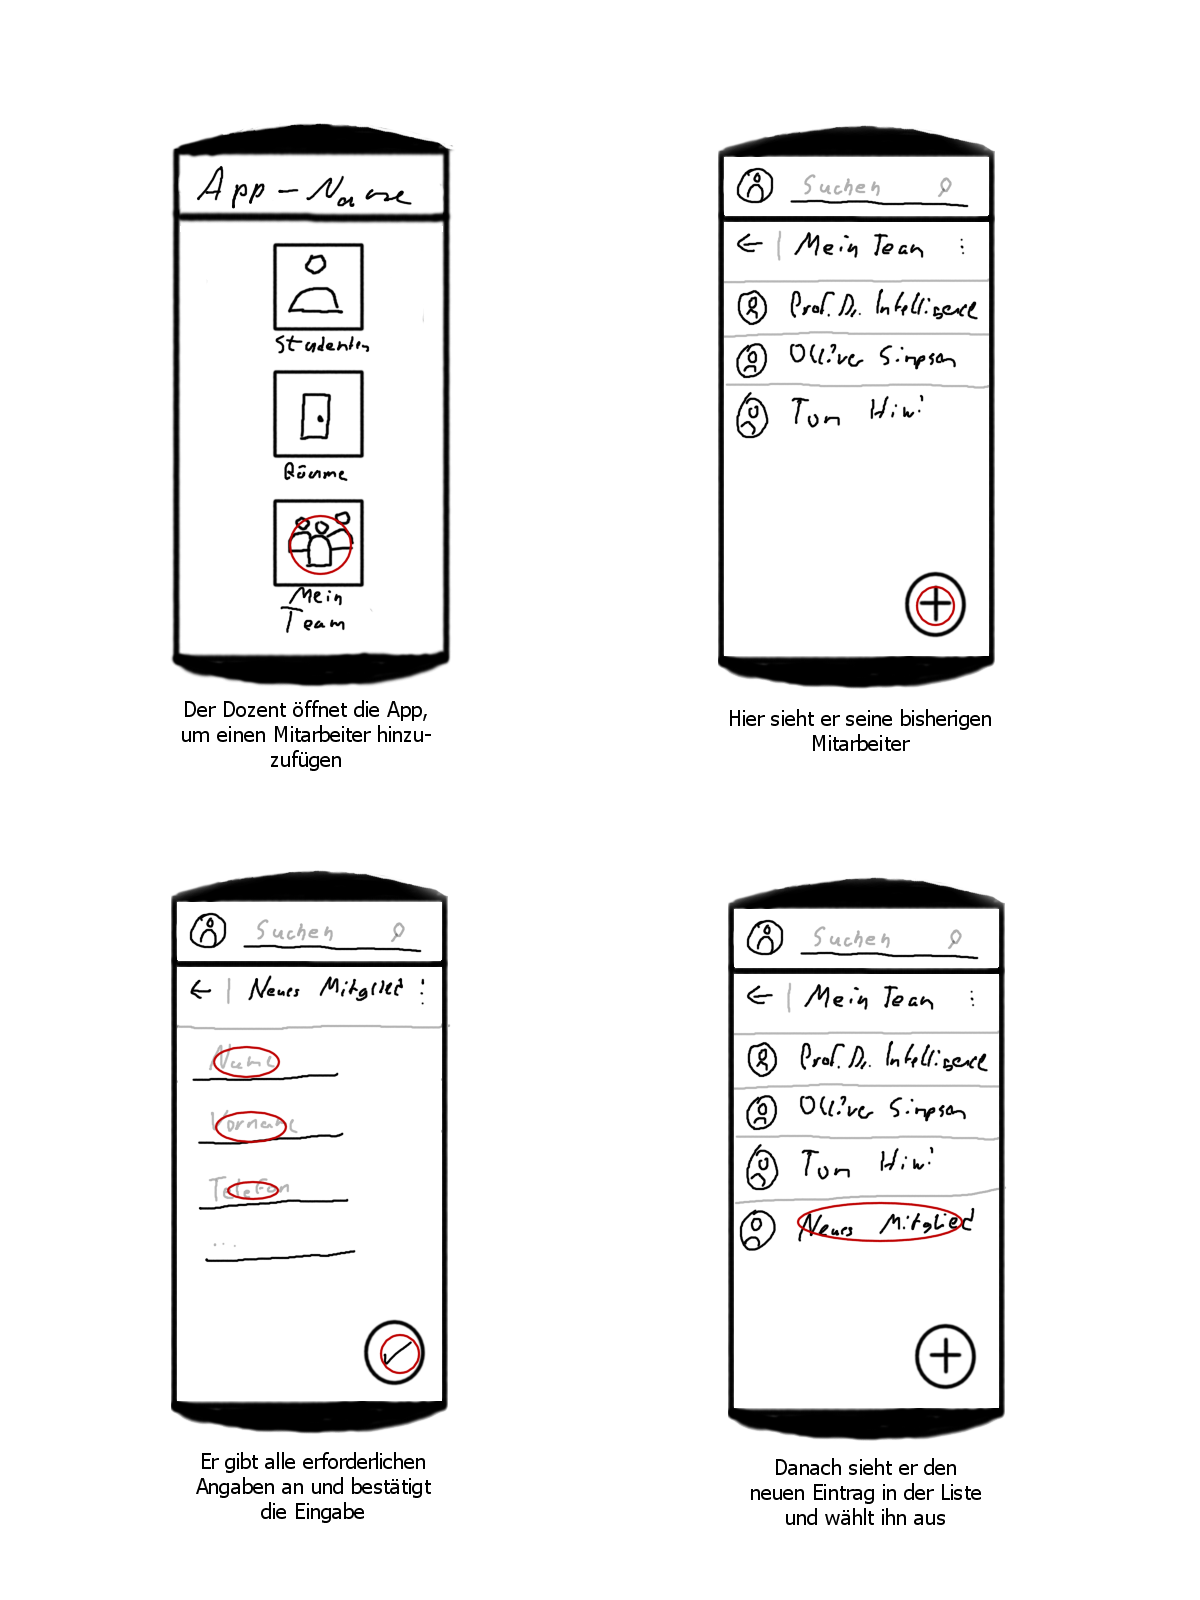 App-Name
Studenten
Räume
Mein
Team
Der Dozent öffnet die App,
um einen Mitarbeiter hinzu-
zufügen
Suchen
Mein Team
Prof. Dr. Intelligence
Olliver Simpson
Tom Hiwi
Hier sieht er seine bisherigen
Mitarbeiter
Suchen
Neues Mitglied
Name
Vorname
Telefon
...
Er gibt alle erforderlichen
Angaben an und bestätigt
die Eingabe
Suchen
Mein Team
Prof. Dr. Intelligence
Olliver Simpson
Tom Hiwi
Neues Mitglied
Danach sieht er den
neuen Eintrag in der Liste
und wählt ihn aus